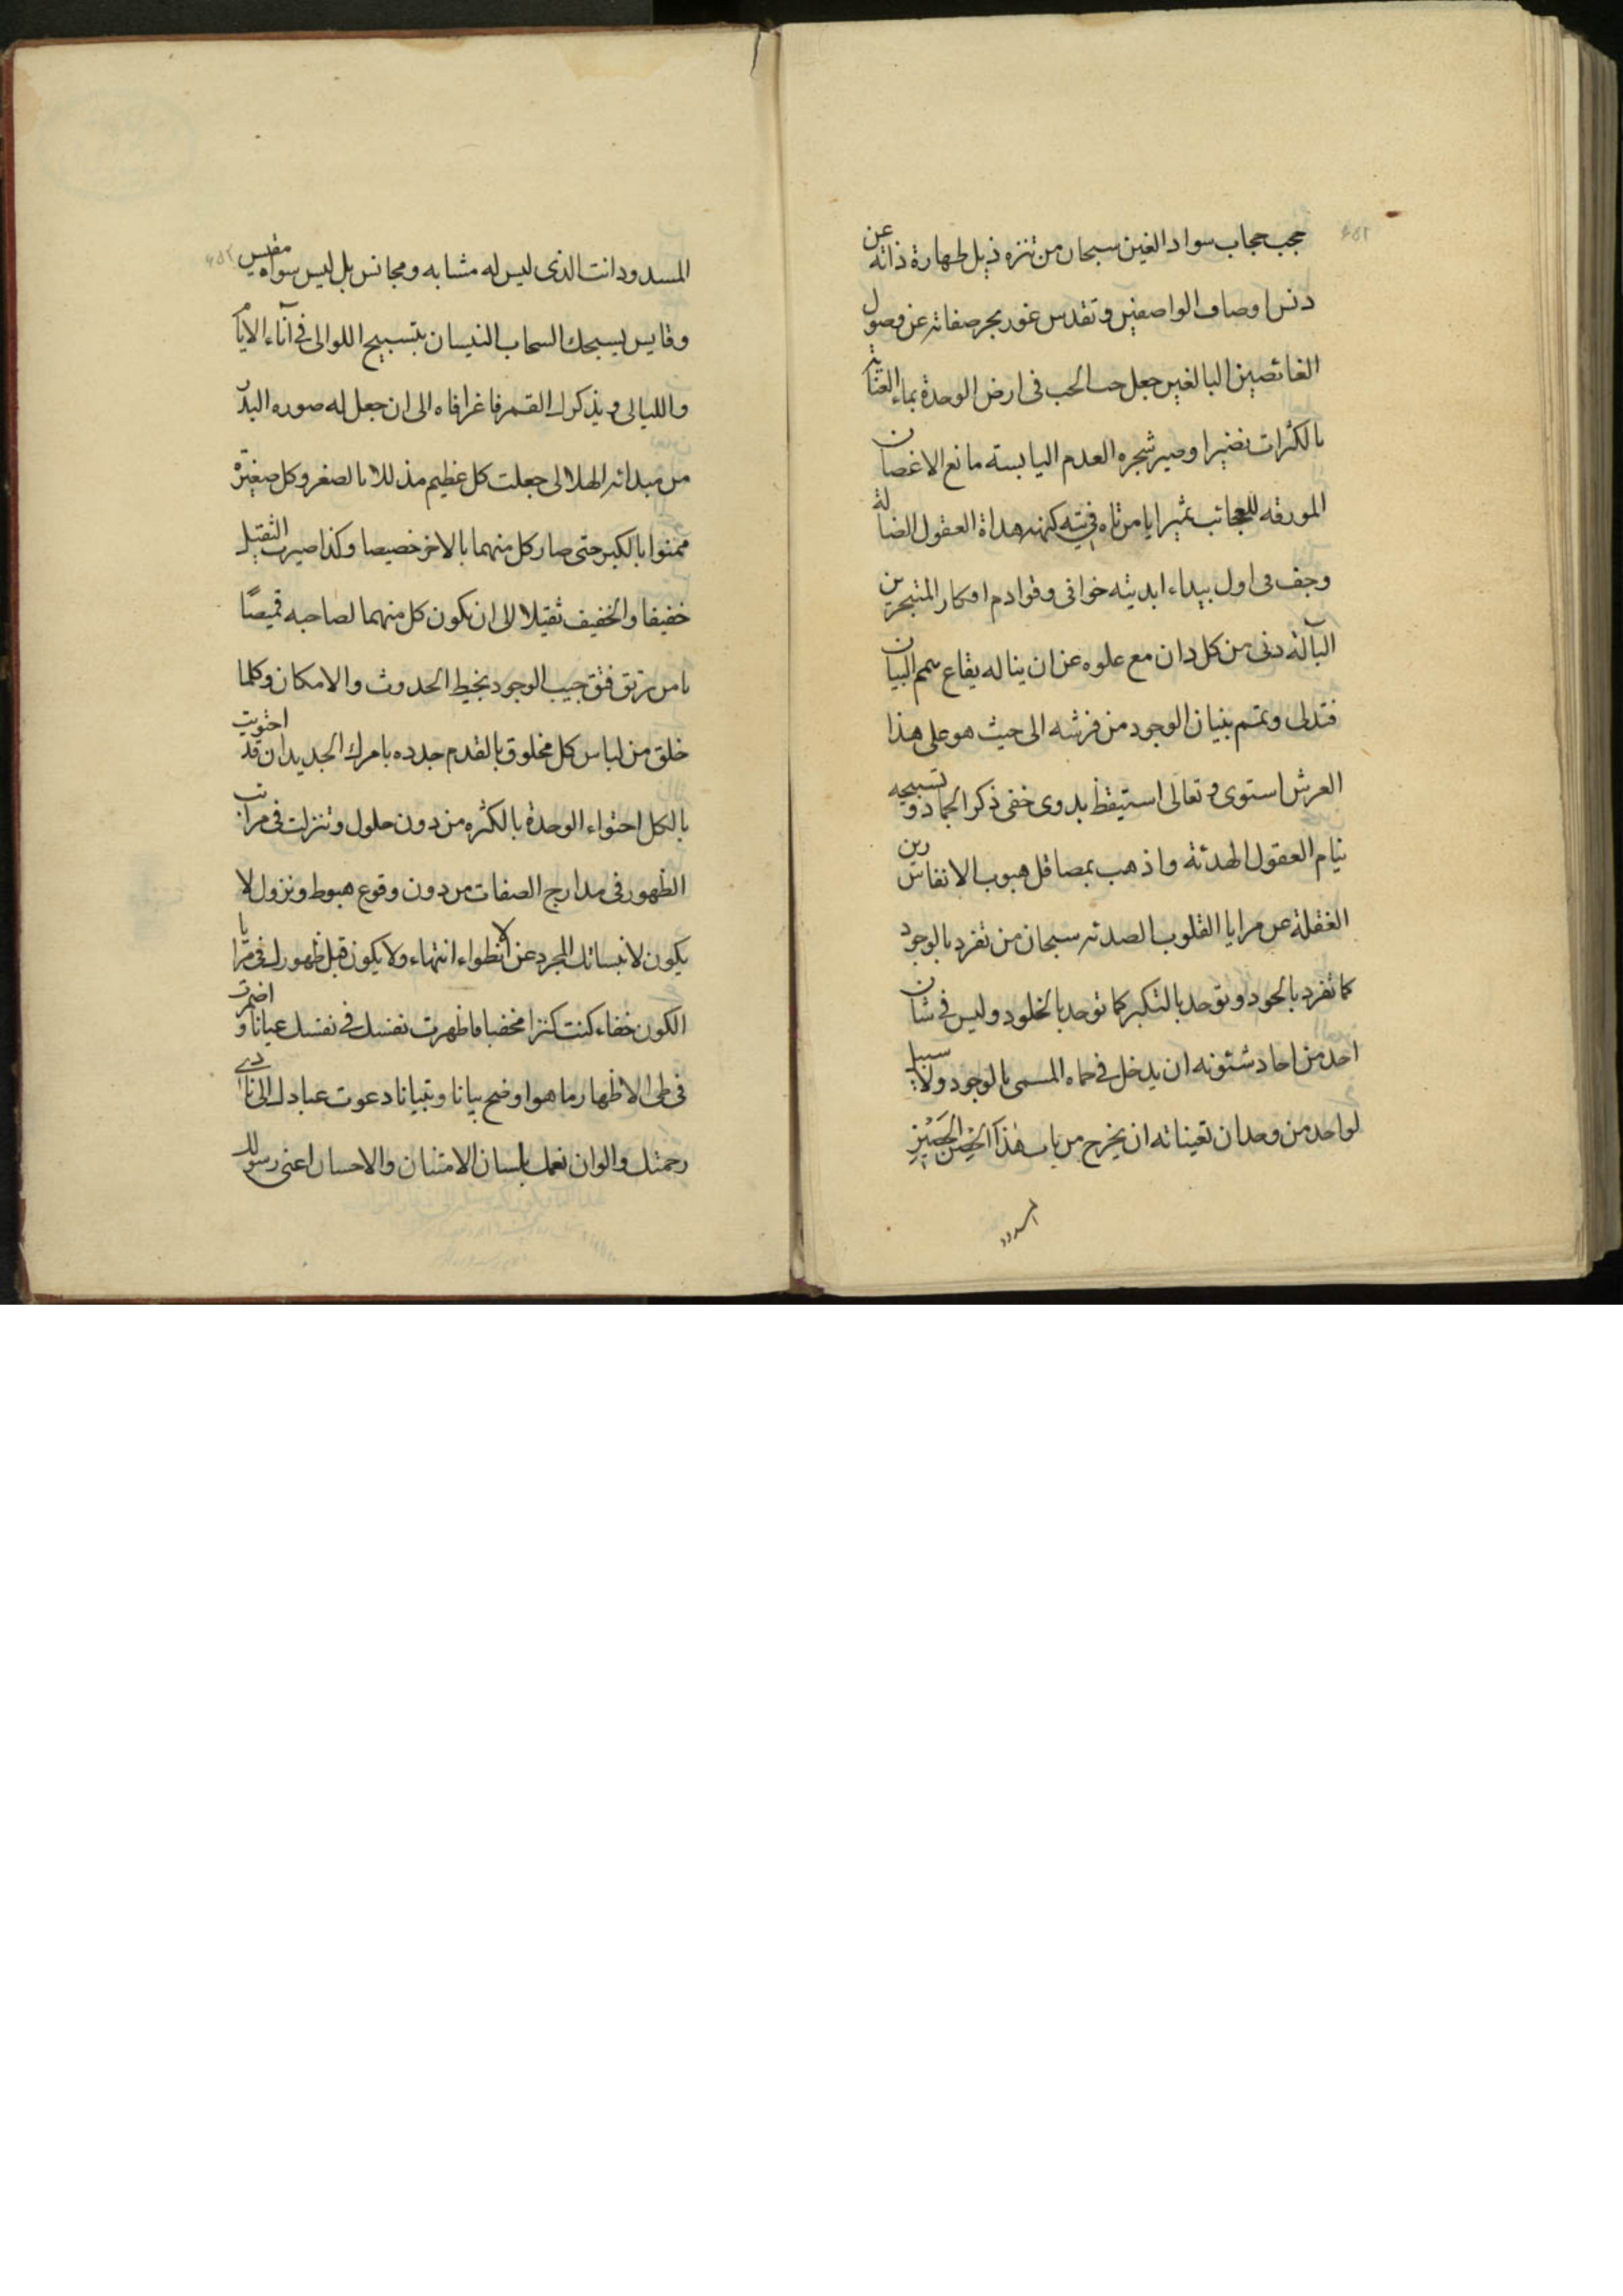 حجب حجاب سواد الغين سبحان من تنزه ذيل طهارة ذاته عن
دنس اوصاف الواصفين وتقدس غور بحر صفاته عن وصول
الغائصين البالغين جعل حب الحب فى ارض الوحدة بماء
بالكثرات نضيرا وصير شجره العدم اليابسته مانع الاغصان
المورقه للعجائب مثيرا يا من تاه فى تيه كنهه هداة العقول الضالة
وجف فى اول بيداء ابديته خوافى وقوادم افكار المتبحرين
البآلة دنى من كل دان مع علوه عن ان يناله يقاع البيان
فتدلى وتمم بنيان الوجود من فرشه الى حيث هو على هذا
العرش استوى وتعالى استيقظ بدوى خفى ذكر الجماد وتسبيحه
نيام العقول الهدئة واذهب بمصاقل هبوب الانفاس رين
الغفلة عن مرايا القلوب الصدئه سبحان من تفرد بالوجود
كما تفرد بالجود وتوحد بالتكبر كما توحد بالخلود وليس فى شان
احد من احاد شئونه ان يدخل فى حماه المسمى بالوجود ولا سبيل
لواحد من وحدان تعيناته ان يخرج من باب هذا الحصن الحصين
المسدود
المسدود انت الذى ليس له مشابه ومجانس بل ليس سواه مقيس
وقايس يسبحك السحاب النيسان بتسبيح اللوالى فى آناء الايام
والليالى ويذكرك القمر فاغرا فاه الى ان جعل له صوره البدر
من مبدائه الهلالى جعلت كل عظيم مذللا بالصغر وكل صغيرة
ممنوا بالكبر حتى صار كل منهما بالاخر خصيصا وكذا صيرت الثقيل
خفيفا والخفيف ثقيلا الى ان يكون كل منهما لصاحبه قميصًا
يا من رتق فتق جيب الوجود بخيط الحدوث والامكان وكلما
خلق من لباس كل مخلوق بالقدم جدده بامرك الجديدان قد احتويت
بالكل احتواء الوحدة بالكثره من دون حلول وتنزلت فى مراتب
الظهور فى مدارج الصفات من دون وقوع هبوط ونزول لا
يكون لانبساتك المجرد عن الانطواء انتهاء ولا يكون قبل ظهورك فى مرايا
الكون خفاء كنت كنزا مخفيا فاظهرت نفسك فى نفسك عيانا واضمرت
فى طى الاظهار ما هو اوضح بيانا وتبيانا دعوت عبادك الى نادى
رحمتك والوان نعمك بلسان الامتنان والاحسان اعنى رسولك